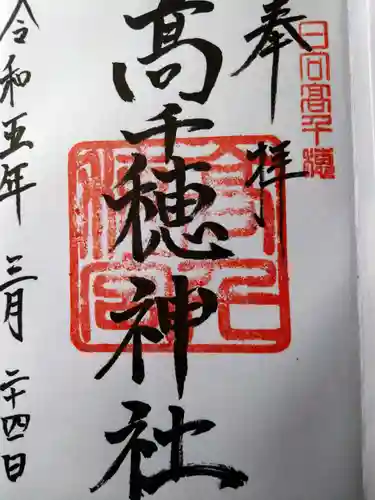 奉拝
日向高千穂
髙千穂神社
令和五年 三月 二十四日